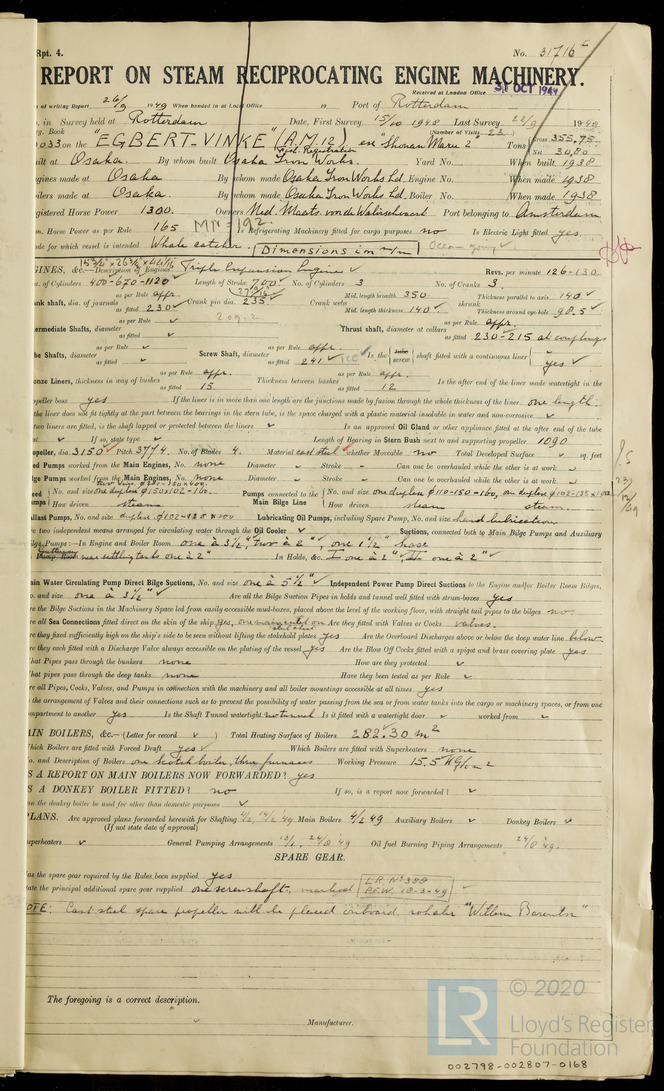 Rpt. 4. No. 31716
REPORT ON STEAM RECIPROCATING ENGINE MACHINERY.
Received at London Office 31 OCT 1949
of writing Report 26/9 1949 When handed in at Local Office 19 Port of Rotterdam
in Survey held at Rotterdam Date, First Survey 15/10 1948 Last Survey 22/9 1949
Book (Number of Visits 23)
on the "EGBERT-VINKE" (A.M.12) ex "Shonan Maru 2" Tons Gross 355.75
Net 30.80
built at Osaka. By whom built Osaka Iron Works. Yard No. When built 1938
Engines made at Osaka By whom made Osaka Iron Works Ltd. Engine No. When made 1938
Boilers made at Osaka. By whom made Osaka Iron Works Ltd. Boiler No. When made 1938
Registered Horse Power 1300. Owners Ned. Maats. voor de Walvischvaart Port belonging to Amsterdam
Horse Power as per Rule 165 MN=192 Is Refrigerating Machinery fitted for cargo purposes no Is Electric Light fitted yes.
Trade for which vessel is intended Whale catcher. Dimensions in m/m Ocean going
ENGINES, &c.—Description of Engines Triple Expansion Engine Revs. per minute 126-130
No. of Cylinders 400-670-1120 Length of Stroke 700 No. of Cylinders 3 No. of Cranks 3.
Crank shaft, dia. of journals as per Rule appr. as fitted 230 Crank pin dia. 235 Crank webs Mid. length breadth 350 Mid. length thickness 140 shrunk Thickness parallel to axis 140 Thickness around eye-hole 98.5
Intermediate Shafts, diameter as per Rule as fitted Thrust shaft, diameter at collars as per Rule appr. as fitted 230-215 at couplings
Tube Shafts, diameter as per Rule as fitted Screw Shaft, diameter as per Rule appr. as fitted 241 Is the screw shaft fitted with a continuous liner yes
Bronze Liners, thickness in way of bushes as per Rule appr. as fitted 15 Thickness between bushes as per Rule appr. as fitted 12 Is the after end of the liner made watertight in the
propeller boss yes If the liner is in more than one length are the junctions made by fusion through the whole thickness of the liner one length.
the liner does not fit tightly at the part between the bearings in the stern tube, is the space charged with a plastic material insoluble in water and non-corrosive
two liners are fitted, is the shaft lapped or protected between the liners Is an approved Oil Gland or other appliance fitted at the after end of the tube
If so, state type Length of Bearing in Stern Bush next to and supporting propeller 1090
Propeller, dia. 3150 Pitch 3774. No. of Blades 4. Material cast steel whether Moveable no Total Developed Surface sq. feet
Feed Pumps worked from the Main Engines, No. none Diameter Stroke Can one be overhauled while the other is at work
Bilge Pumps worked from the Main Engines, No. none Diameter Stroke Can one be overhauled while the other is at work
Feed Pumps No. and size one duplex How driven steam Pumps connected to the Main Bilge Line No. and size one duplex ø110-150-160, one duplex How driven steam steam.
Ballast Pumps, No. and size Lubricating Oil Pumps, including Spare Pump, No. and size hand lubrication
two independent means arranged for circulating water through the Oil Cooler Suctions, connected both to Main Bilge Pumps and Auxiliary
Bilge Pumps:—In Engine and Boiler Room one à 3½", two à 2", one 1½" hose
near settling tanks one à 2" In Holds, &c. I one à 2", II one à 2"
Main Water Circulating Pump Direct Bilge Suctions, No. and size one à 5½" Independent Power Pump Direct Suctions to the Engine and/or Boiler Room Bilges,
No. and size one à 3½" Are all the Bilge Suction Pipes in holds and tunnel well fitted with strum-boxes yes
Are the Bilge Suctions in the Machinery Space led from easily accessible mud-boxes, placed above the level of the working floor, with straight tail pipes to the bilges no.
Are all Sea Connections fitted direct on the skin of the ship yes, Are they fitted with Valves or Cocks valves.
Are they fixed sufficiently high on the ship's side to be seen without lifting the stokehold plates yes Are the Overboard Discharges above or below the deep water line below
Are they each fitted with a Discharge Valve always accessible on the plating of the vessel yes Are the Blow Off Cocks fitted with a spigot and brass covering plate yes
What Pipes pass through the bunkers none How are they protected
What pipes pass through the deep tanks none Have they been tested as per Rule
Are all Pipes, Cocks, Valves, and Pumps in connection with the machinery and all boiler mountings accessible at all times yes
Is the arrangement of Valves and their connections such as to prevent the possibility of water passing from the sea or from water tanks into the cargo or machinery spaces, or from one
compartment to another yes Is the Shaft Tunnel watertight no tunnel Is it fitted with a watertight door worked from
MAIN BOILERS, &c.—(Letter for record ) Total Heating Surface of Boilers 282.30 m²
Which Boilers are fitted with Forced Draft yes Which Boilers are fitted with Superheaters none
No. and Description of Boilers one scotch boiler, three furnaces Working Pressure 15.5 KG/cm²
IS A REPORT ON MAIN BOILERS NOW FORWARDED? yes
IS A DONKEY BOILER FITTED? no If so, is a report now forwarded?
Can the donkey boiler be used for other than domestic purposes
PLANS. Are approved plans forwarded for Shafting 4/2, 14/2 49 Main Boilers 4/2 49 Auxiliary Boilers Donkey Boilers
(If not state date of approval)
Superheaters General Pumping Arrangements 24/8 '49 Oil fuel Burning Piping Arrangements 24/8 '49.
SPARE GEAR.
Has the spare gear required by the Rules been supplied yes
State the principal additional spare gear supplied one screwshaft, marked LR No 388 P.F.W. 18-3-49
NOTE: Cast steel spare propeller will be placed onboard "Willem Barentsz"
The foregoing is a correct description.
Manufacturer.
© 2020
LR
Lloyd's Register
Foundation
002798-002807-0168